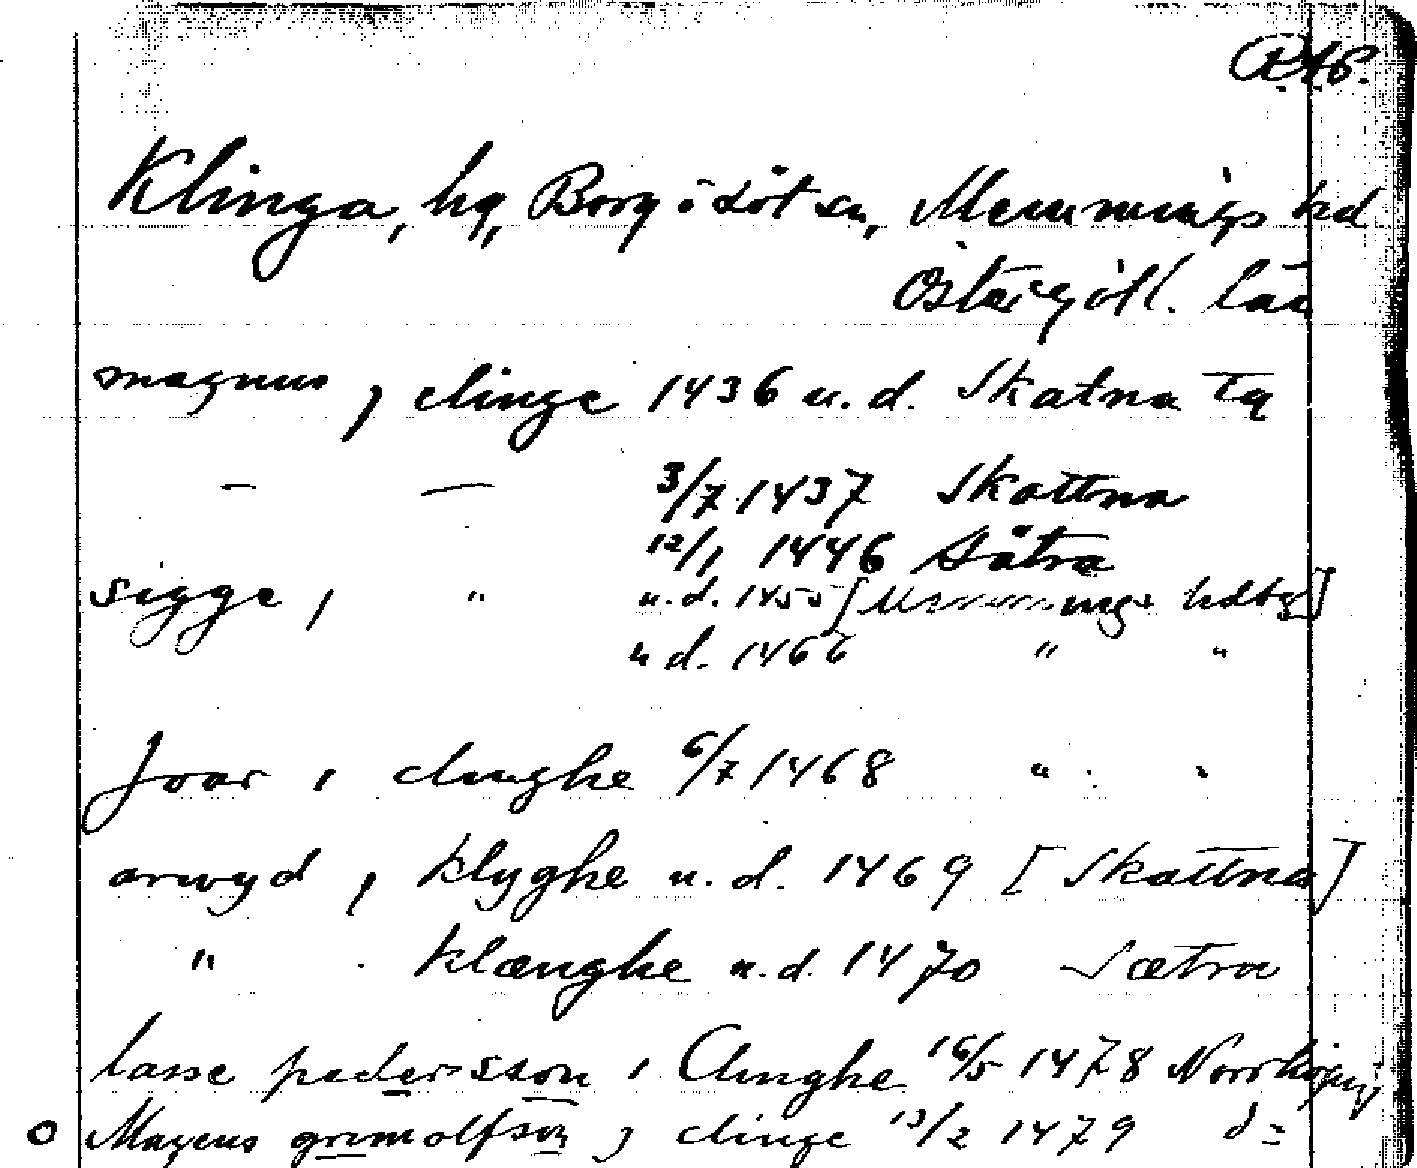 RAP.
Klinga, hg, Borg o Löt sn, Memmings hd
Östergötl. län
magnus j clinge 1436 u.d. Skatna tg
– — 3/7 1437 Skattna
12/1 1446 Sätra
sigge, i " u.d. 1455 [Memmings hdtg]
u d. 1466 " "
Joar i clinghe 6/7 1468 " "
arwyd i klyghe u.d. 1469 [Skattna]
" klænghe u.d. 1470 Sætra
lasse pedersson i Clinghe 16/5 1478 Norrköping
o Magnus grimolfson j clinge 13/2 1479 d:o